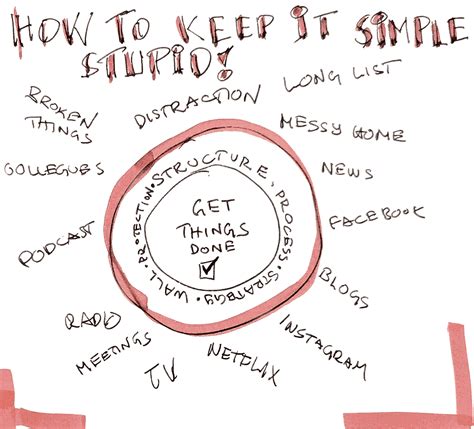 HOW TO KEEP IT SIMPLE
STUPID!
BROKEN
THINGS
DISTRACTION
LONG LIST
MESSY HOME
COLLEGUES
NEWS
STRUCTURE, PROCESS · STRATEGY · WALL · PROTECTION ·
GET
THINGS
DONE
PODCAST
FACEBOOK
BLOGS
RADIO
INSTAGRAM
MEETINGS
TV
NETFLIX